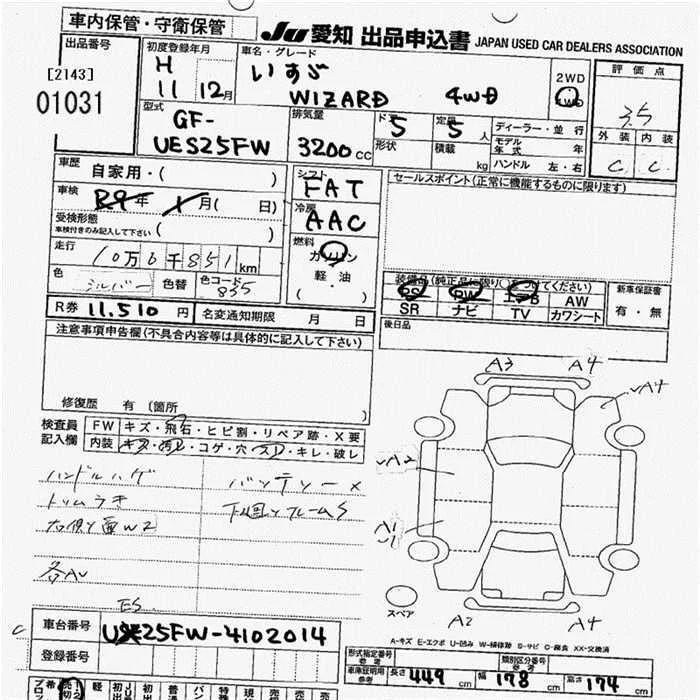 車内保管・守衛保管
JU 愛知 出品申込書 JAPAN USED CAR DEALERS ASSOCIATION
出品番号
[2143]
01031
初度登録年月
H
11 12月
車名・グレード
いすゞ
WIZARD 4WD
2WD
4WD
評価点
3.5
外装 内装
C C
型式
GF-
UES25FW
排気量
3200 cc
ドア
5
形状
定員
5 人
積載
kg
ディーラー・並行
モデル年式 年
ハンドル 左・右
車歴
自家用・( )
車検
R9年 1月( 日)
受検形態
車検付きのみ記入して下さい ( )
走行
10万6千851km
色
シルバー
色替
色コード
835
( )
シフト
FAT
冷房
AAC
燃料
ガソリン
軽・油
( )
セールスポイント(正常に機能するものに限ります)
装備品(純正品に限り○をつけてください)
PS PW エアB AW
SR ナビ TV カワシート
新車保証書
有・無
R券 11.510 円
名変通知期限 月 日
後日品
注意事項申告欄(不具合内容等は具体的に記入して下さい)
修復歴 有 (箇所 )
検査員
記入欄
FW キズ・飛石・ヒビ割・リペア跡・X要
内装 キズ・汚レ・コゲ・穴・スレ・キレ・破レ
ハンドルハゲ バッテリー×
トリムうき 下回りフレームS
W2
各AU
A3 A4
A4
A2
A1
スペア
A2 A4
A-キズ E-エクボ U-凹み W-補修跡 S-サビ C-腐食 XX-交換済
ES
車台番号
UES25FW-4102014
登録番号
形式指定番号
参考
類別区分番号
参考
車庫証明用
参考
長さ 449 cm 幅 178 cm 高さ 174 cm